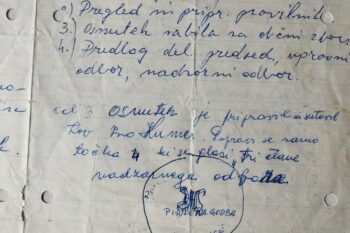 2) Pregled in pripr. pravilnik
3. Osnutek vabila na občni zbor
4.) Predlog del. predsed, upravni
odbor, nadzorni odbor.
od 3 Osnutek je pripravil
Lov Humer. Popravi se samo
točka 4 ki se glasi „Tri člane
nadzornega odbora
PIHALNA GODBA